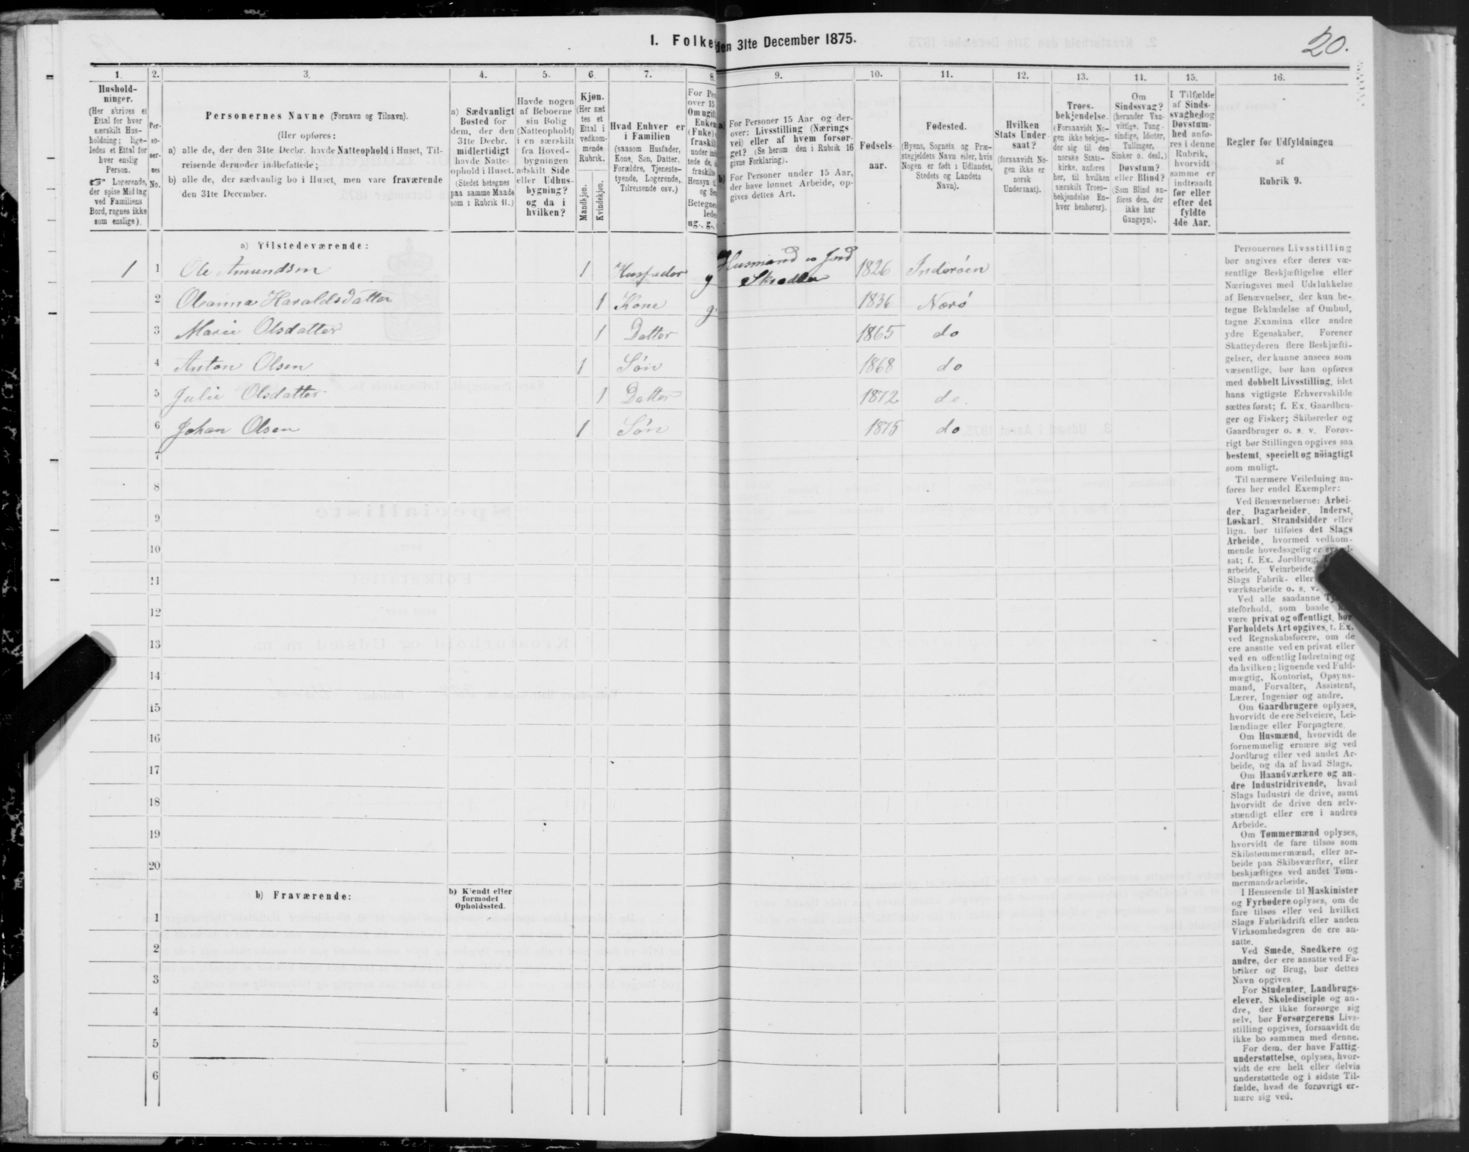 I. Folke
den 31te December 1875.
20.
1.
2.
3.
4.
5.
6.
7.
8.
9.
10.
11.
12.
13.
14.
15.
16.
Hushold-
ninger.
(Her skrives et
Ettal for hver
særskilt Hus-
holdning; lige-
ledes et Ettal for
hver enslig
Person.
☞ Logerende,
der spise Middag
ved Familiens
Bord, regnes ikke
som enslige).
Per-
so-
ner-
nes
No.
Personernes Navne (Fornavn og Tilnavn).
(Her opføres:
a) alle de, der den 31te Decbr. havde Natteophold i Huset, Til-
reisende derunder indbefattede;
b) alle de, der sædvanlig bo i Huset, men vare fraværende
den 31te December.
a) Sædvanligt
Bosted for
dem, der den
31te Decbr.
midlertidigt
havde Natte-
ophold i Huset.
(Stedet betegnes
paa samme Maade
som i Rubrik 11.)
Havde nogen
af Beboerne
sin Bolig
(Natteophold)
i en særskilt
fra Hoved-
bygningen
adskilt Side
eller Udhus-
bygning?
og da i
hvilken?
Kjøn.
(Her sæt-
tes et
Ettal i
vedkom-
mende
Rubrik.
Mandkjøn.
Kvindekjøn.
Hvad Enhver er
i Familien
(saasom Husfader,
Kone, Søn, Datter,
Forældre, Tjeneste-
tyende, Logerende,
Tilreisende osv.)
For Per
over 15
Om ugift
Enken
(Enke)
fraskilt
Betegne
ledes
ug., g.,
For Personer 15 Aar og der-
over: Livsstilling (Nærings
vei) eller af hvem forsør-
get? (Se herom den i Rubrik 16
givne Forklaring).
For Personer under 15 Aar,
der have lønnet Arbeide, op-
gives dettes Art.
Fødsels-
aar.
Fødested.
(Byens, Sognets og Præ-
stegjeldets Navn eller, hvis
Nogen er født i Udlandet,
Stedets og Landets
Navn).
Hvilken
Stats Under-
saat?
(forsaavidt No-
gen ikke er
norsk
Undersaat).
Troes-
bekjendelse.
(Forsaavidt No-
gen ikke bekjen-
der sig til den
norske Stats-
kirke, anføres
her, til hvilken
særskilt Troes-
bekjendelse En-
hver henhører).
Om
Sindssvag?
(herunder Van-
vittige, Tung-
sindige, Idioter,
Tullinger,
Sinker o. desl.)
Døvstum?
eller Blind?
(Som Blind an-
føres den, der
ikke har
Gangsyn).
I Tilfælde
af Sinds-
svaghed og
Døvstum-
hed anfø-
res i denne
Rubrik,
hvorvidt
samme er
indtraadt
før eller
efter det
fyldte
4de Aar.
Regler for Udfyldningen
af
Rubrik 9.
a) Tilstedeværende:
1 1 Ole Amundsen 1 Husfader g Husmand m Jord 1826 Inderøen
Skrædder
2 Olianna Haraldsdatter 1 Kone g. 1836 Nærø
3 Marie Olsdatter 1 Datter 1865 do
4 Anton Olsen 1 Søn 1868 do
5 Julie Olsdatter 1 Datter 1872 do.
6 Johan Olsen 1 Søn 1875 do
7
8
9
10
11
12
13
14
15
16
17
18
19
20
b) Fraværende:
b) Kjendt eller
formodet
Opholdssted.
1
2
3
4
5
6
Personernes Livsstilling
bør angives efter deres væ-
sentlige Beskjæftigelse eller
Næringsvei med Udelukkelse
af Benævnelser, der kun be-
tegne Beklædelse af Ombud,
tagne Examina eller andre
ydre Egenskaber. Forener
Skatteyderen flere Beskjæfti-
gelser, der kunne ansees som
væsentlige, bør han opføres
med dobbelt Livsstilling, idet
hans vigtigste Erhvervskilde
sættes først; f. Ex. Gaardbru-
ger og Fisker; Skibsreder og
Gaardbruger o. s. v. Forøv-
rigt bør Stillingen opgives saa
bestemt, specielt og nöiagtigt
som muligt.
Til nærmere Veiledning an-
føres her endel Exempler:
Ved Benævnelserne: Arbei-
der, Dagarbeider, Inderst,
Løskarl, Strandsidder eller
lign. bør tilføies det Slags
Arbeide, hvormed vedkom-
mende hovedsagelig er
sat; f. Ex. Jordbrug,
arbeide, Veiarbeide,
Slags Fabrik- eller
værksarbeide o. s. v.
Ved alle saadanne
steforhold, som baade
være privat og offentligt, bør
Forholdets Art opgives, f. Ex.
ved Regnskabsførere, om de
ere ansatte ved en privat eller
ved en offentlig Indretning og
da hvilken; lignende ved Fuld-
mægtig, Kontorist, Opsyns-
mand, Forvalter, Assistent,
Lærer, Ingeniør og andre.
Om Gaardbrugere oplyses,
hvorvidt de ere Selveiere, Lei-
lændinge eller Forpagtere.
Om Husmænd, hvorvidt de
fornemmelig ernære sig ved
Jordbrug eller ved andet Ar-
beide, og da af hvad Slags.
Om Haandværkere og an-
dre Industridrivende, hvad
Slags Industri de drive, samt
hvorvidt de drive den selv-
stændigt eller ere i andres
Arbeide.
Om Tømmermænd oplyses,
hvorvidt de fare tilsøs som
Skibstømmermænd, eller ar-
beide paa Skibsværfter, eller
beskjæftiges ved andet Tøm-
mermandsarbeide.
I Henseende til Maskinister
og Fyrbødere oplyses, om de
fare tilsøs eller ved hvilket
Slags Fabrikdrift eller anden
Virksomhedsgren de ere an-
satte.
Ved Smede, Snedkere og
andre, der ere ansatte ved Fa-
briker og Brug, bør dettes
Navn opgives.
For Studenter, Landbrugs-
elever, Skoledisciple og an-
dre, der ikke forsørge sig
selv, bør Forsørgerens Livs-
stilling opgives, forsaavidt de
ikke bo sammen med denne.
For dem, der have Fattig-
understøttelse, oplyses, hvor-
vidt de ere helt eller delvis
understøttede og i sidste Til-
fælde, hvad de forøvrigt er-
nære sig ved.